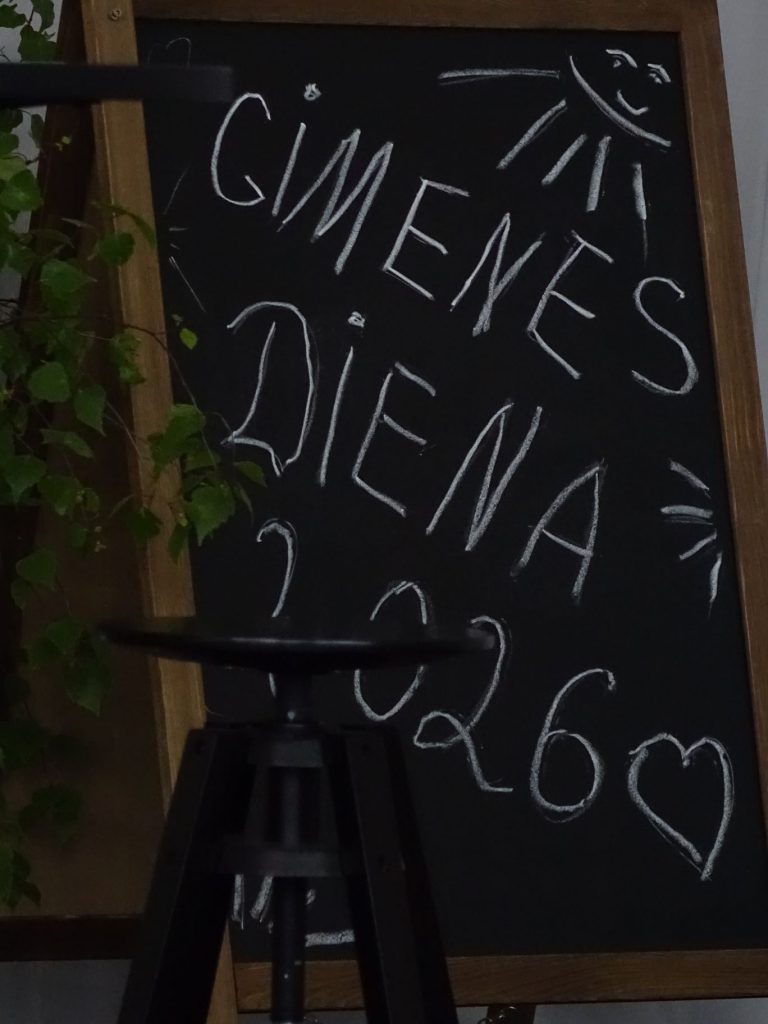 GiMENES
DiENA
2026